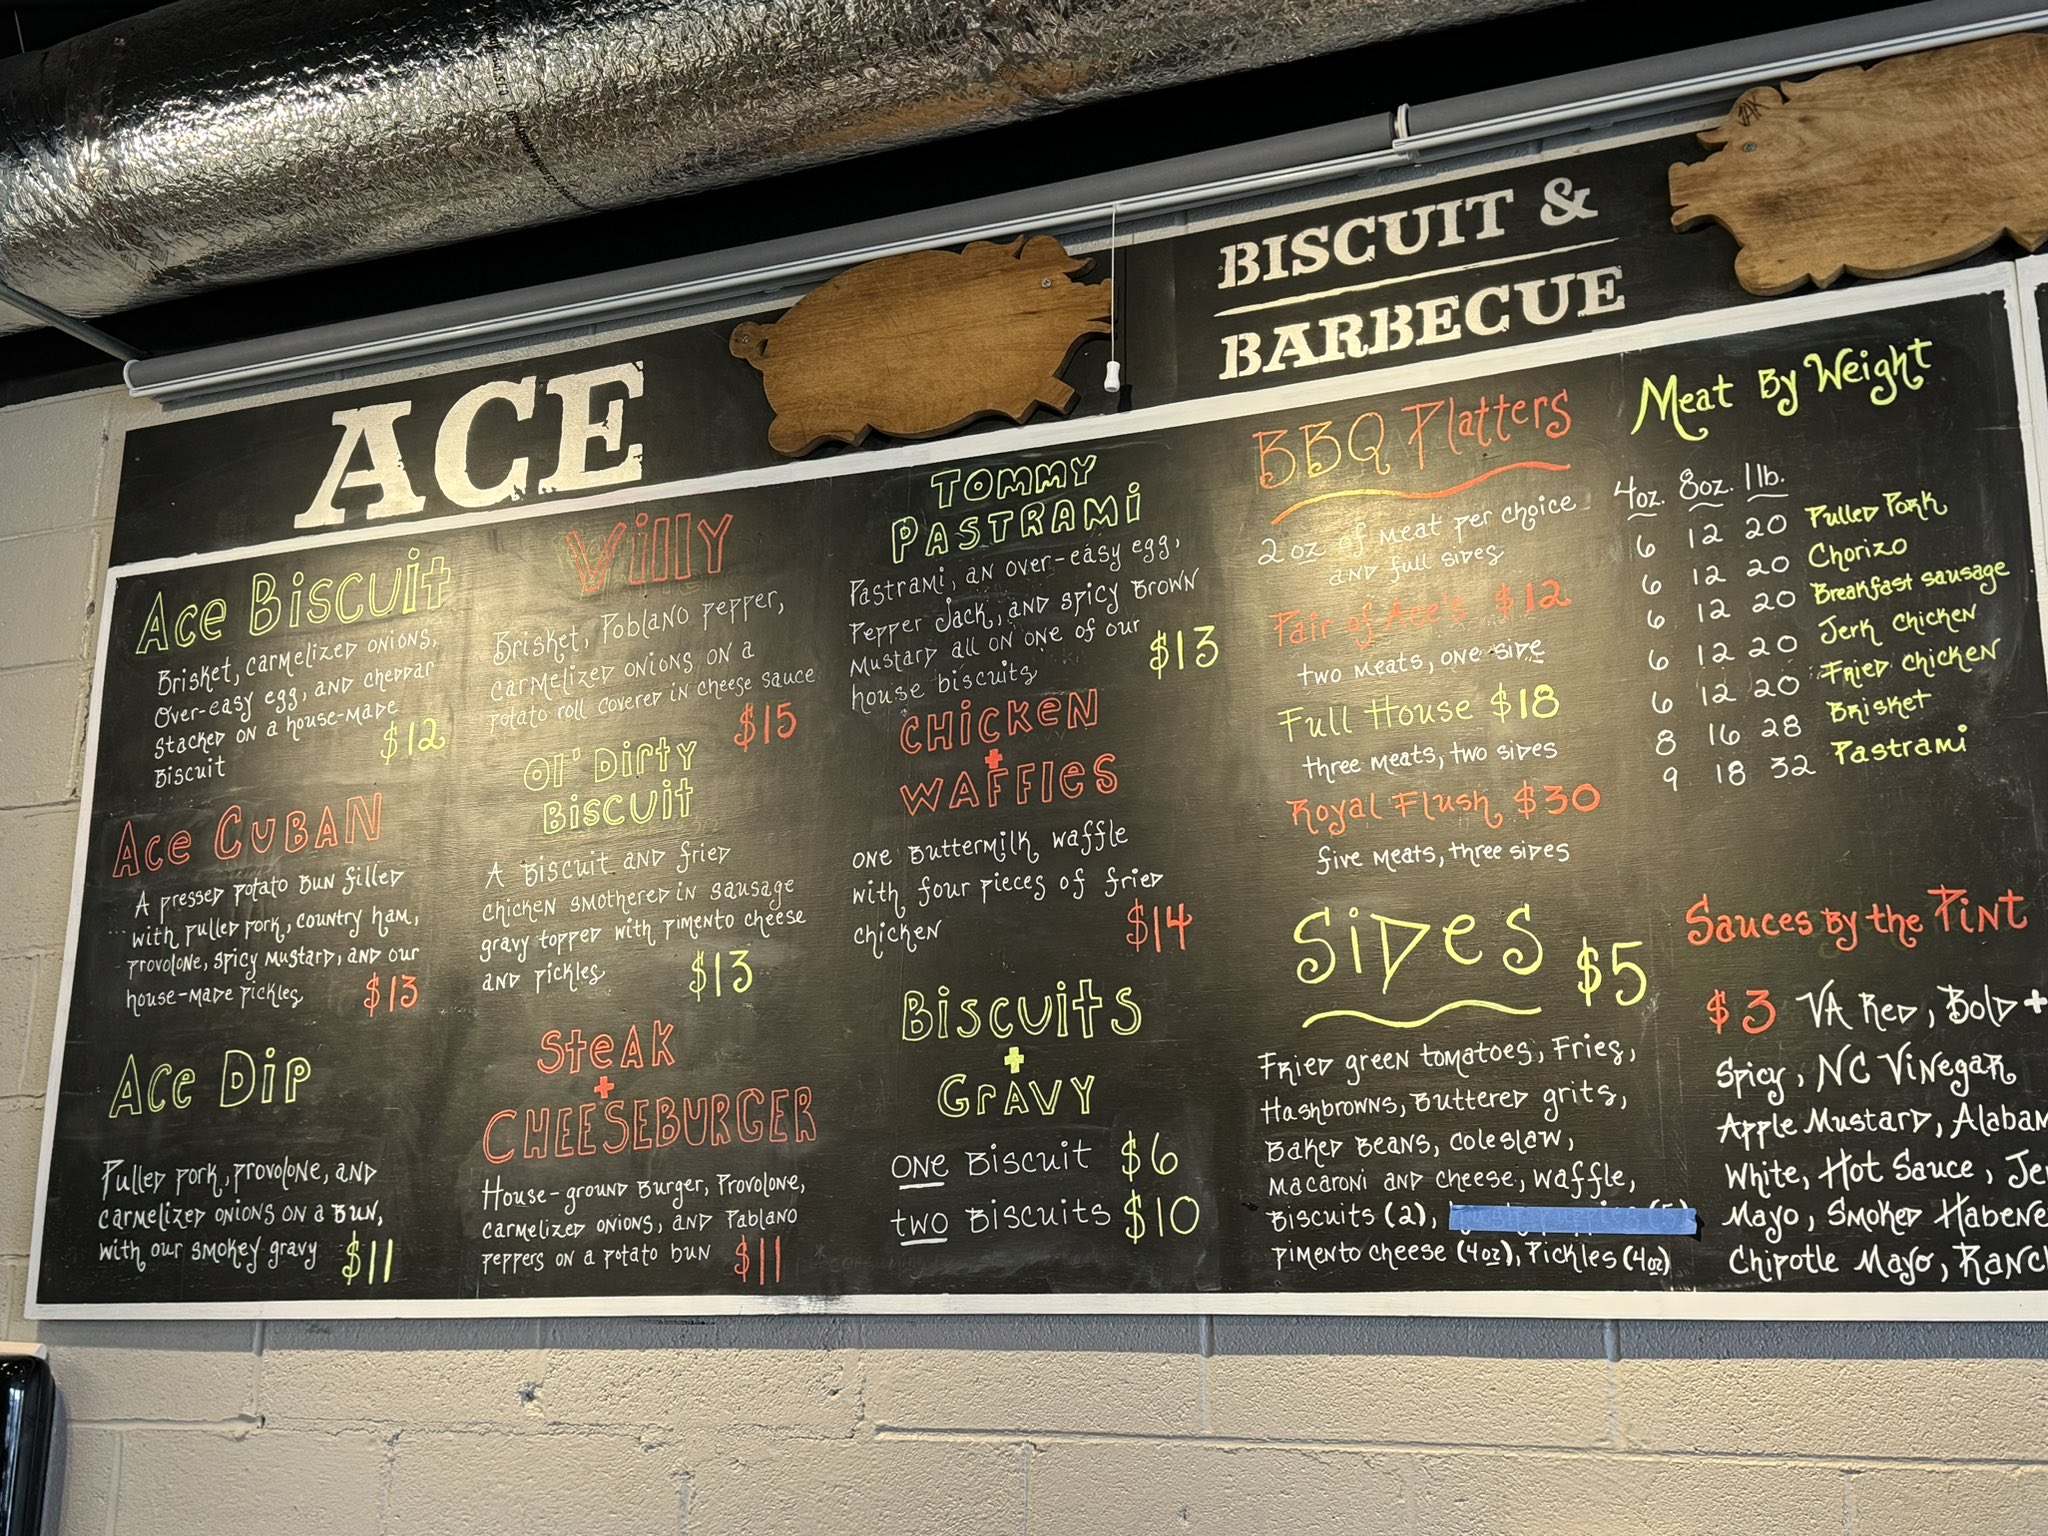 ACE
BISCUIT &
BARBECUE
Ace Biscuit
Brisket, carmelized onions,
over-easy egg, and cheddar
stacked on a house-made
Biscuit
$12
Ace Cuban
A pressed potato bun filled
with pulled pork, country ham,
provolone, spicy mustard, and our
house-made pickles
$13
Ace Dip
Pulled pork, provolone, and
carmelized onions on a bun,
with our smokey gravy
$11
Villy
Brisket, Poblano pepper,
carmelized onions on a
potato roll covered in cheese sauce
$15
Ol' Dirty
Biscuit
A Biscuit and fried
chicken smothered in sausage
gravy topped with pimento cheese
and pickles
$13
Steak
+
Cheeseburger
House-ground Burger, Provolone,
carmelized onions, and Pablano
peppers on a potato bun
$11
Tommy
Pastrami
Pastrami, an over-easy egg,
Pepper Jack, and spicy Brown
Mustard all on one of our
house biscuits
$13
Chicken
+
Waffles
one Buttermilk waffle
with four pieces of fried
chicken
$14
Biscuits
+
Gravy
one Biscuit $6
two Biscuits $10
BBQ Platters
2 oz of meat per choice
and full sides
Pair of Ace's $12
two meats, one side
Full House $18
three meats, two sides
Royal Flush $30
five meats, three sides
Sides $5
Fried green tomatoes, Fries,
Hashbrowns, Buttered grits,
Baked Beans, coleslaw,
Macaroni and cheese, waffle,
Biscuits (2),
pimento cheese (4oz), Pickles (4oz)
Meat By Weight
4oz. 8oz. 1lb.
6 12 20 Pulled Pork
6 12 20 Chorizo
6 12 20 Breakfast sausage
6 12 20 Jerk chicken
6 12 20 Fried chicken
8 16 28 Brisket
9 18 32 Pastrami
Sauces by the Pint
$3 VA Red, Bold +
Spicy, NC Vinegar
Apple Mustard, Alabam
White, Hot Sauce, Je
Mayo, Smoked Habene
Chipotle Mayo, Ranc